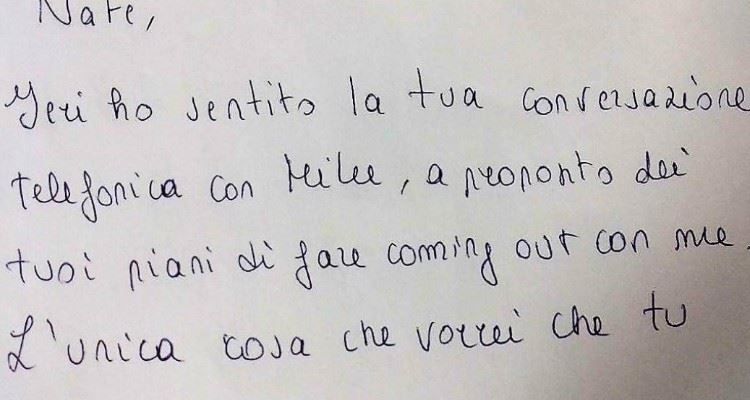 Nate,
Ieri ho sentito la tua conversazione
telefonica con Mike, a proposito dei
tuoi piani di fare coming out con me.
L'unica cosa che vorrei che tu